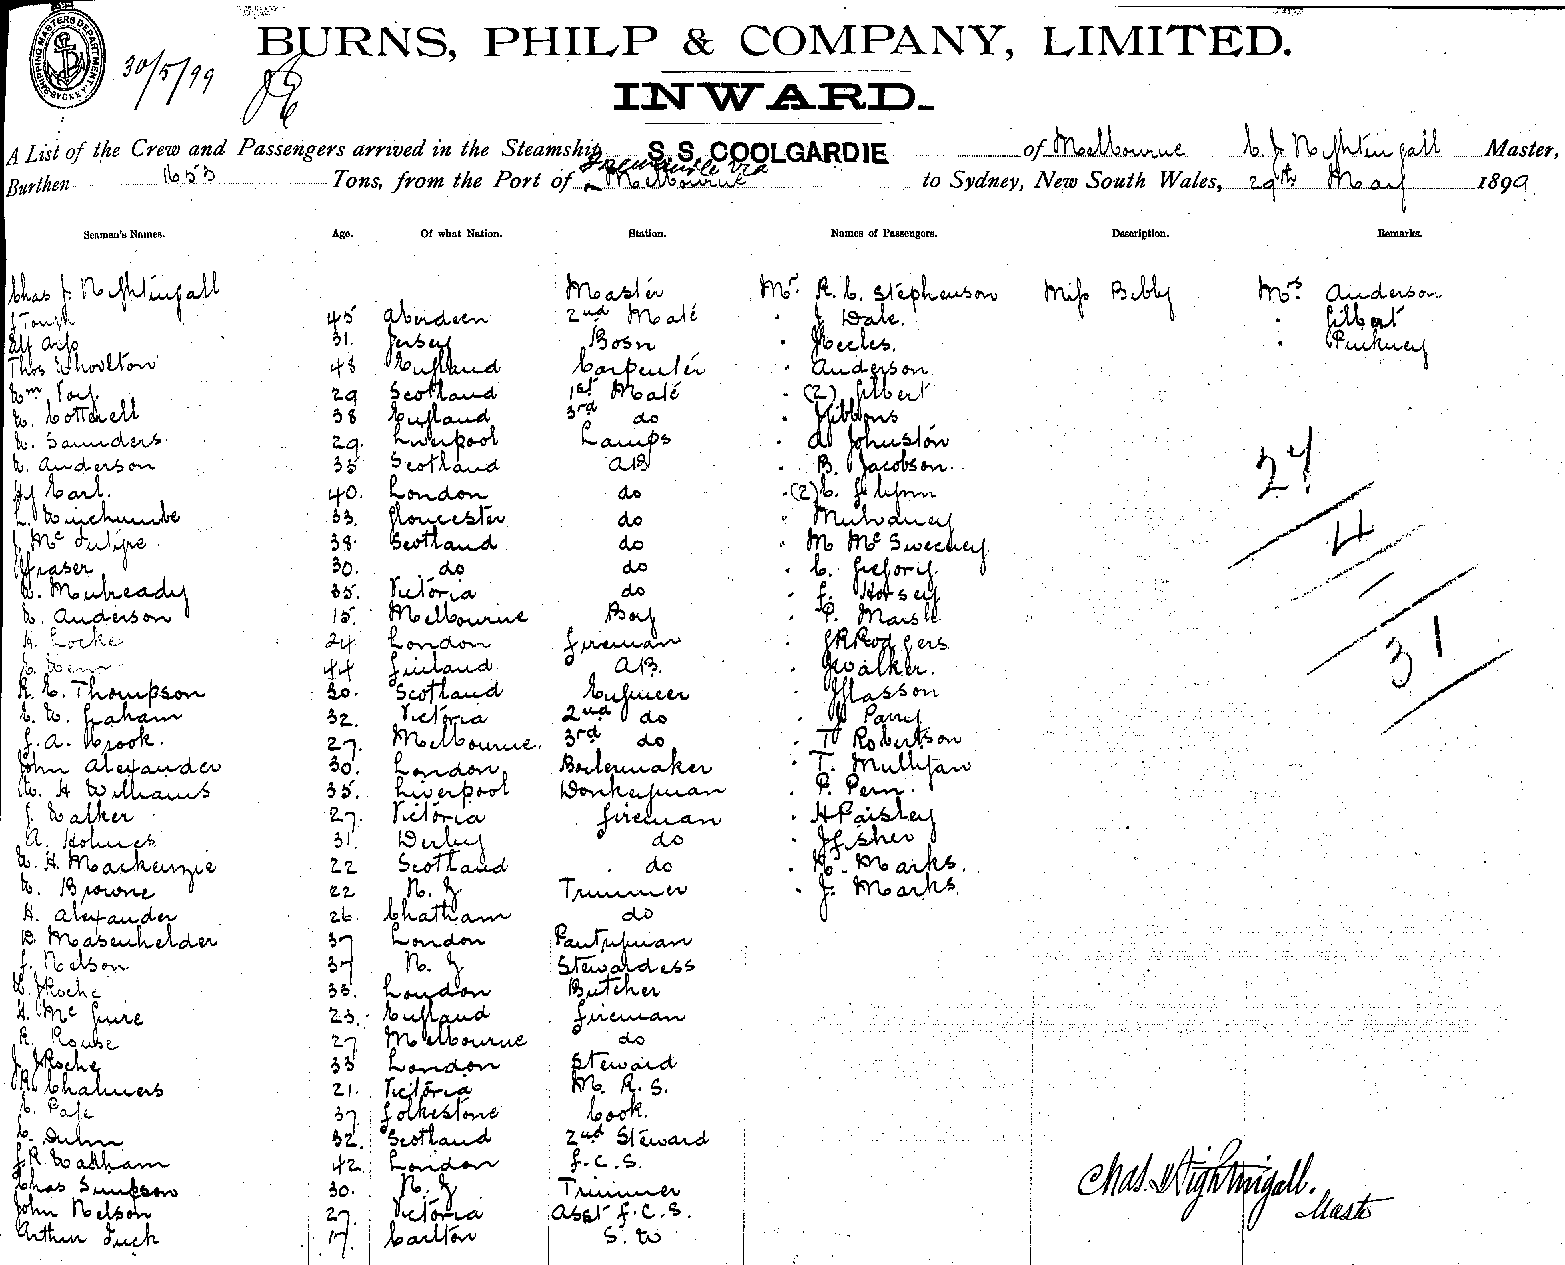 SHIPPING MASTERS DEPARTMENT SYDNEY
30/5/99
BURNS, PHILP & COMPANY, LIMITED.
INWARD.
A List of the Crew and Passengers arrived in the Steamship S. S. COOLGARDIE of Melbourne C. J. Nightingall Master,
Burthen 1653 Tons, from the Port of Fremantle via Melbourne to Sydney, New South Wales, 29th May 1899
Seamen's Names. Age. Of what Nation. Station. Names of Passengers. Description. Remarks.
Chas J. Nightingall Master Mr. R. C. Stephenson Miss Bibby Mrs. Anderson
J Tough 45 Aberdeen 2nd Mate " J Dale. " Gilbert
31. Jersey Bosn " Eccles. " Pinkney
Thos 48 England Carpenter " Anderson
Wm 29 Scotland 1st Mate " (2) Gilbert
W. Cotterell 38 England 3rd do " Gibbons
W. Saunders 29. Liverpool Lamps " A Johnston
W. Anderson 35 Scotland AB " B. Jacobson.
Hy Earl. 40. London do " (2) C. Flynn
L. Winchcombe 33. Gloucester do " Mulvaney
J. McIntyre 38. Scotland do " M McSweeney
Fraser 30. do do " C. Gregory
W. Mulready 35. Victoria do " F. Horsey
W. Anderson 15. Melbourne Boy " P.
H. Locke 24 London Fireman " J R Rodgers
44 Finland AB. " J Walker.
R. C. Thompson 30. Scotland Engineer " J Glasson
E. W. Graham 32. Victoria 2nd do " J Parry
F. A. Brook. 27. Melbourne. 3rd do " T Robertson
John Alexander 30. London Boilermaker " T. Mulligan
W. H Williams 35. Liverpool Donkeyman " P. Penn.
J. Walker 27. Victoria Fireman " H Paisley
A. Holmes 31. Derby do " J Fisher
W. H. Mackenzie 22 Scotland do " H. Marks.
W. Browne 22 N. Z Trimmer " J. Marks.
H. Alexander 26. Chatham do
D. Masenhelder 37 London Pantryman
F. Nelson 37 N. Z Stewardess
Roche 33. London Butcher
H. McGuire 23. England Fireman
R. Rouse 27 Melbourne do
J. J Roche 33 London Steward
R. Chalmers 21. Victoria M. R. S.
C. Page 37 Folkestone Cook.
C. Dunn 32. Scotland 2nd Steward
J. R. Oakham 42. London F. C. S.
Chas Simpson 30. N. Z Trimmer
John Nelson 27. Victoria Asst F. C. S.
Arthur Tuck 17. Carlton S. W
27
4
31
Chas. J Nightingall.
Master